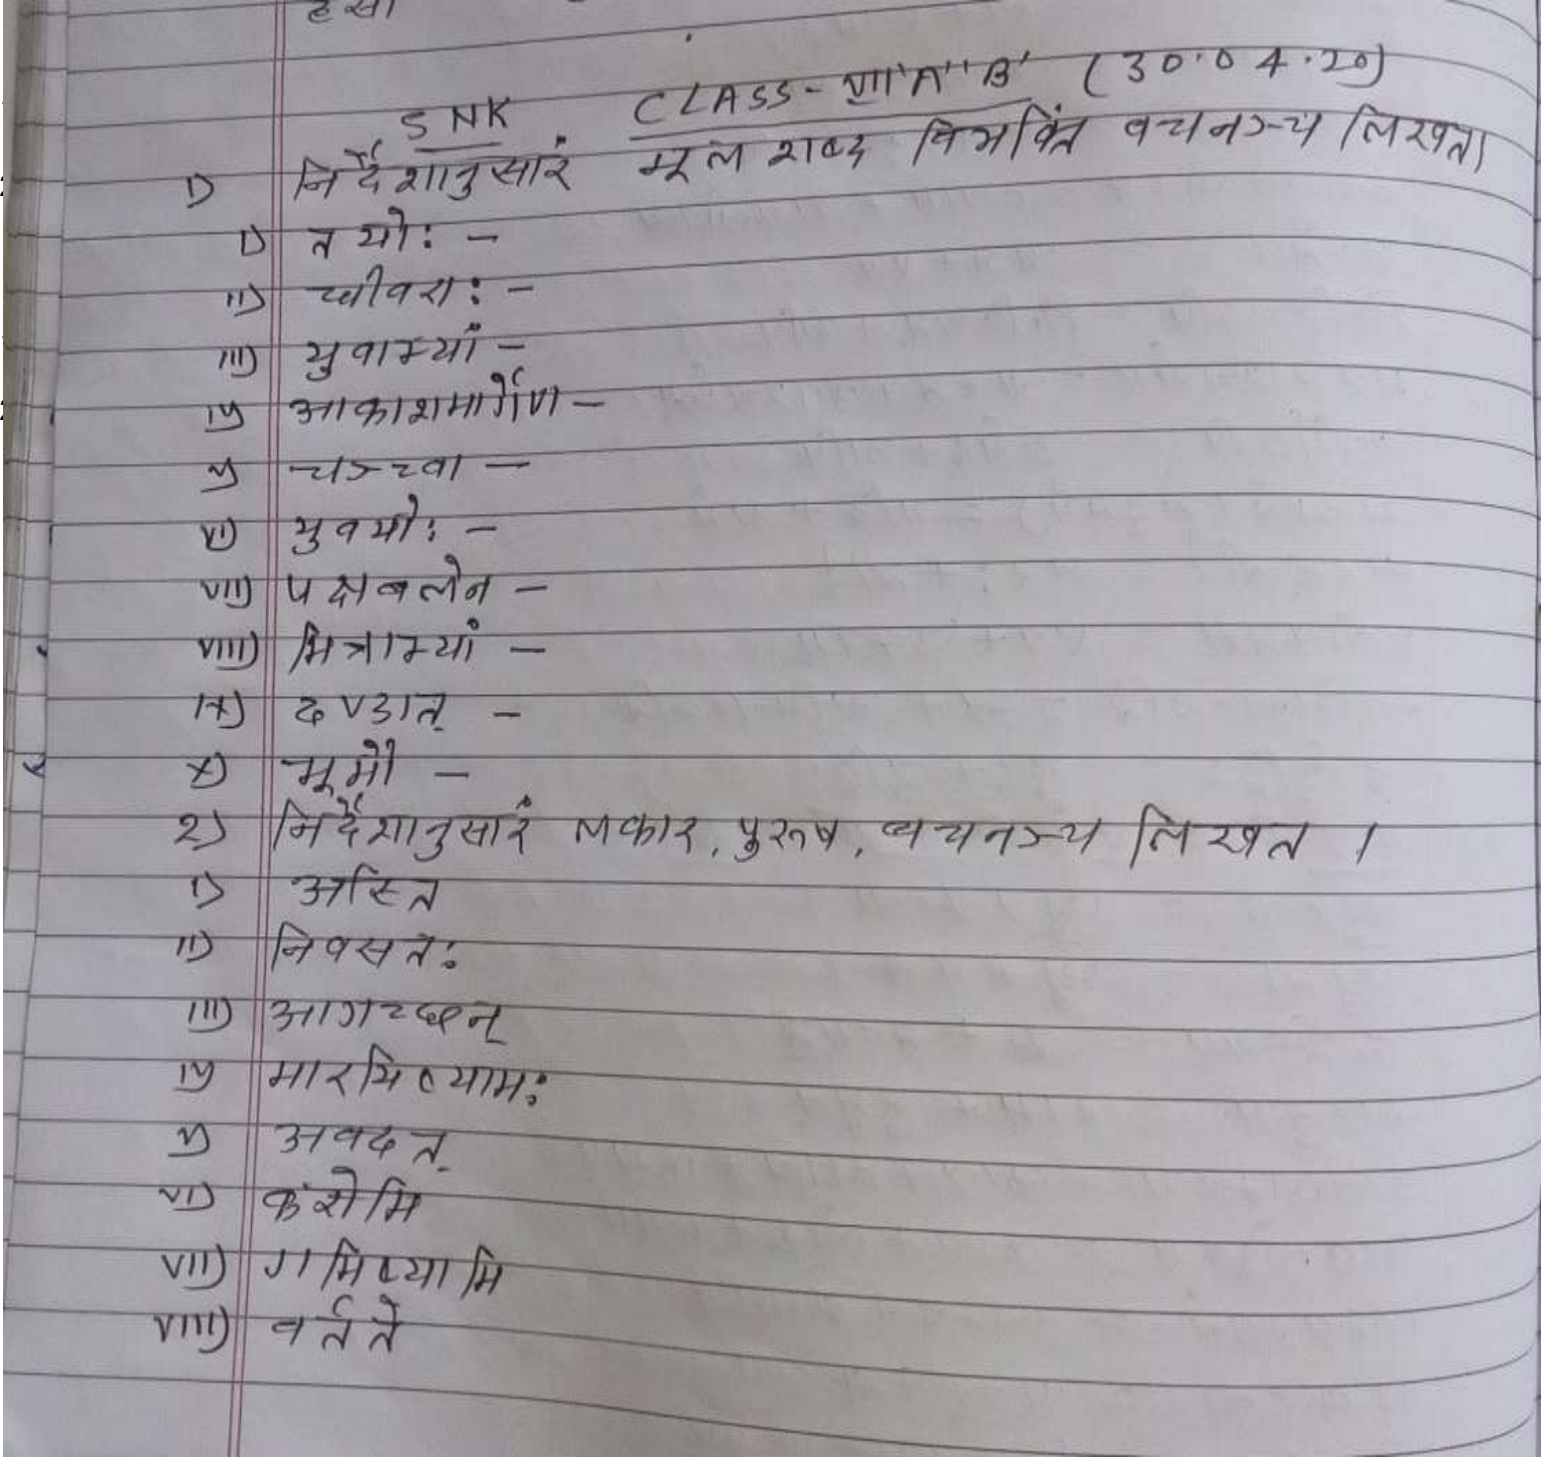 SNK CLASS-VII 'A' 'B' (30.04.20)
1) निर्देशानुसारं मूल शब्द विभक्तिं वचनञ्च लिखत।
i) तयोः -
ii) धीवराः -
iii) युवाभ्यां -
iv) आकाशमार्गेण -
v) चञ्च्वा -
vi) युवयोः -
vii) पक्षबलेन -
viii) मित्राभ्यां -
ix) दण्डात् -
x) भूमौ -
2) निर्देशानुसारं लकार, पुरूष, वचनञ्च लिखत ।
i) अस्ति
ii) निवसतः
iii) आगच्छन्
iv) मारयिष्यामः
v) अवदत्
vi) करोमि
vii) गमिष्यामि
viii) वर्तते